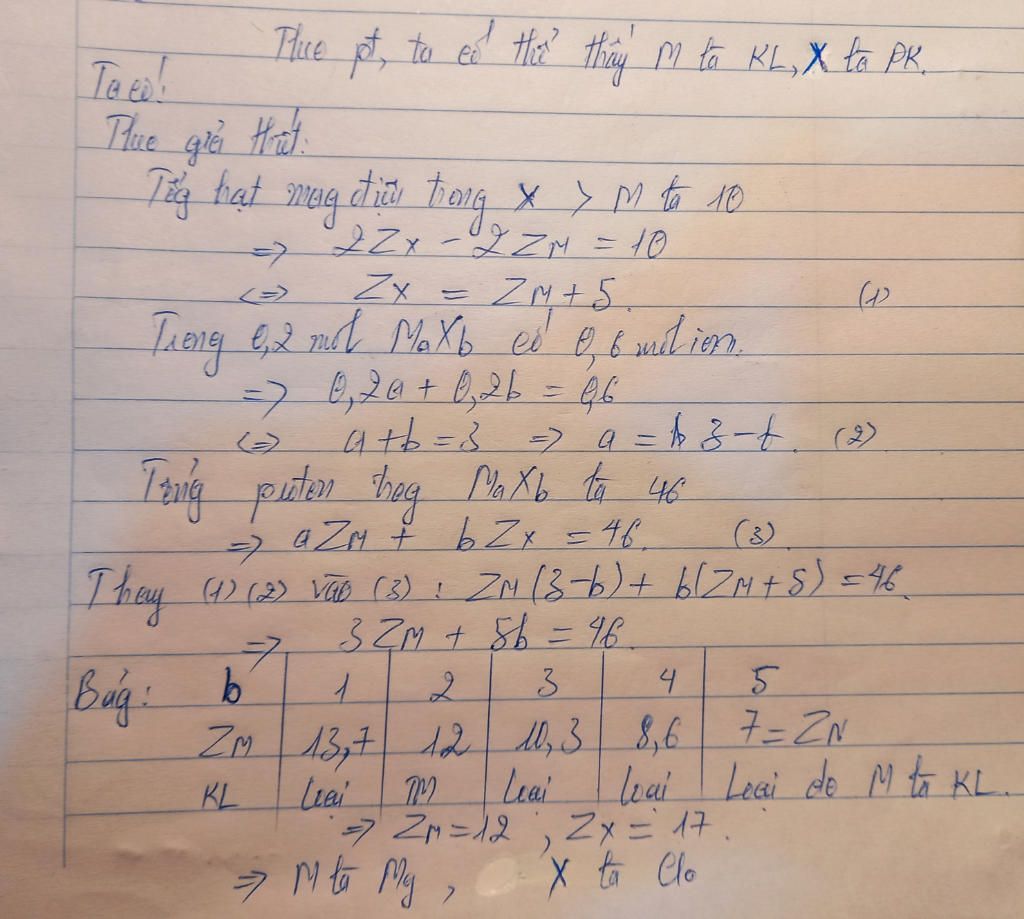 Theo pt, ta có thể thấy M là KL, X là PK.
Ta có:
Theo giả thiết:
Tổg hạt mag điện trong X > M là 10
=> 2ZX - 2ZM = 10
<=> ZX = ZM + 5. (1)
Trong 0,2 mol MaXb có 0,6 mol ion.
=> 0,2a + 0,2b = 0,6
<=> a + b = 3 => a = 3 - b. (2)
Tổng proton trog MaXb là 46
=> aZM + bZX = 46. (3)
Thay (1) (2) vào (3) : ZM(3-b) + b(ZM+5) = 46.
=> 3ZM + 5b = 46.
Bảg: b 1 2 3 4 5
ZM 13,7 12 10,3 8,6 7 = ZN
KL Loại TM Loại Loại Loại do M là KL.
=> ZM = 12, ZX = 17.
=> M là Mg, X là Clo